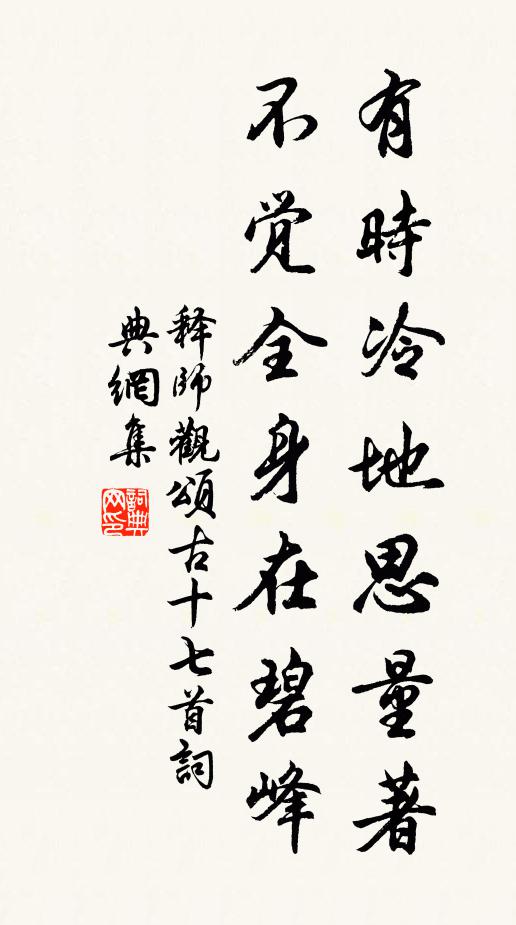 有時冷地思量著
不觉全身在碧峰
释師觀頌古十七首詞
典網集
詞典网印